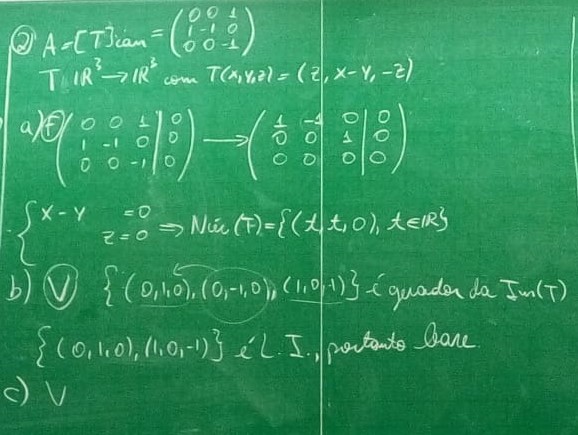 ② A = [T]can = ( 0 0 1
1 -1 0
0 0 -1 )
T: IR³ → IR³ com T(x,y,z) = (z, x-y, -z)
a) Ⓕ ( 0 0 1 | 0 → ( 1 -1 0 | 0
1 -1 0 | 0 0 0 1 | 0
0 0 -1 | 0 ) 0 0 0 | 0 )
{ x - y = 0
z = 0 ⇒ Núc(T) = {(t, t, 0), t ∈ IR}
b) Ⓥ {(0,1,0), (0,-1,0), (1,0,-1)} é gerador da Im(T)
{(0,1,0), (1,0,-1)} é L.I., portanto base.
c) V